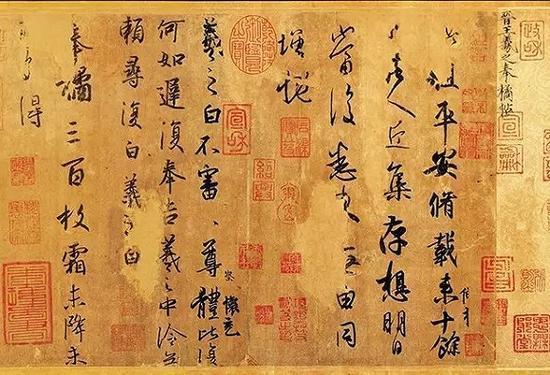 晉王羲之奉橘帖
此粗平安脩載来十餘
日諸人近集存想明日
當復悉来無由同
增慨
羲之白不審尊體比復
察 懷充
何如遲復奉告羲之中冷無
賴尋復白羲之白
奉橘三百枚霜未降未
可多得
政和
宣和